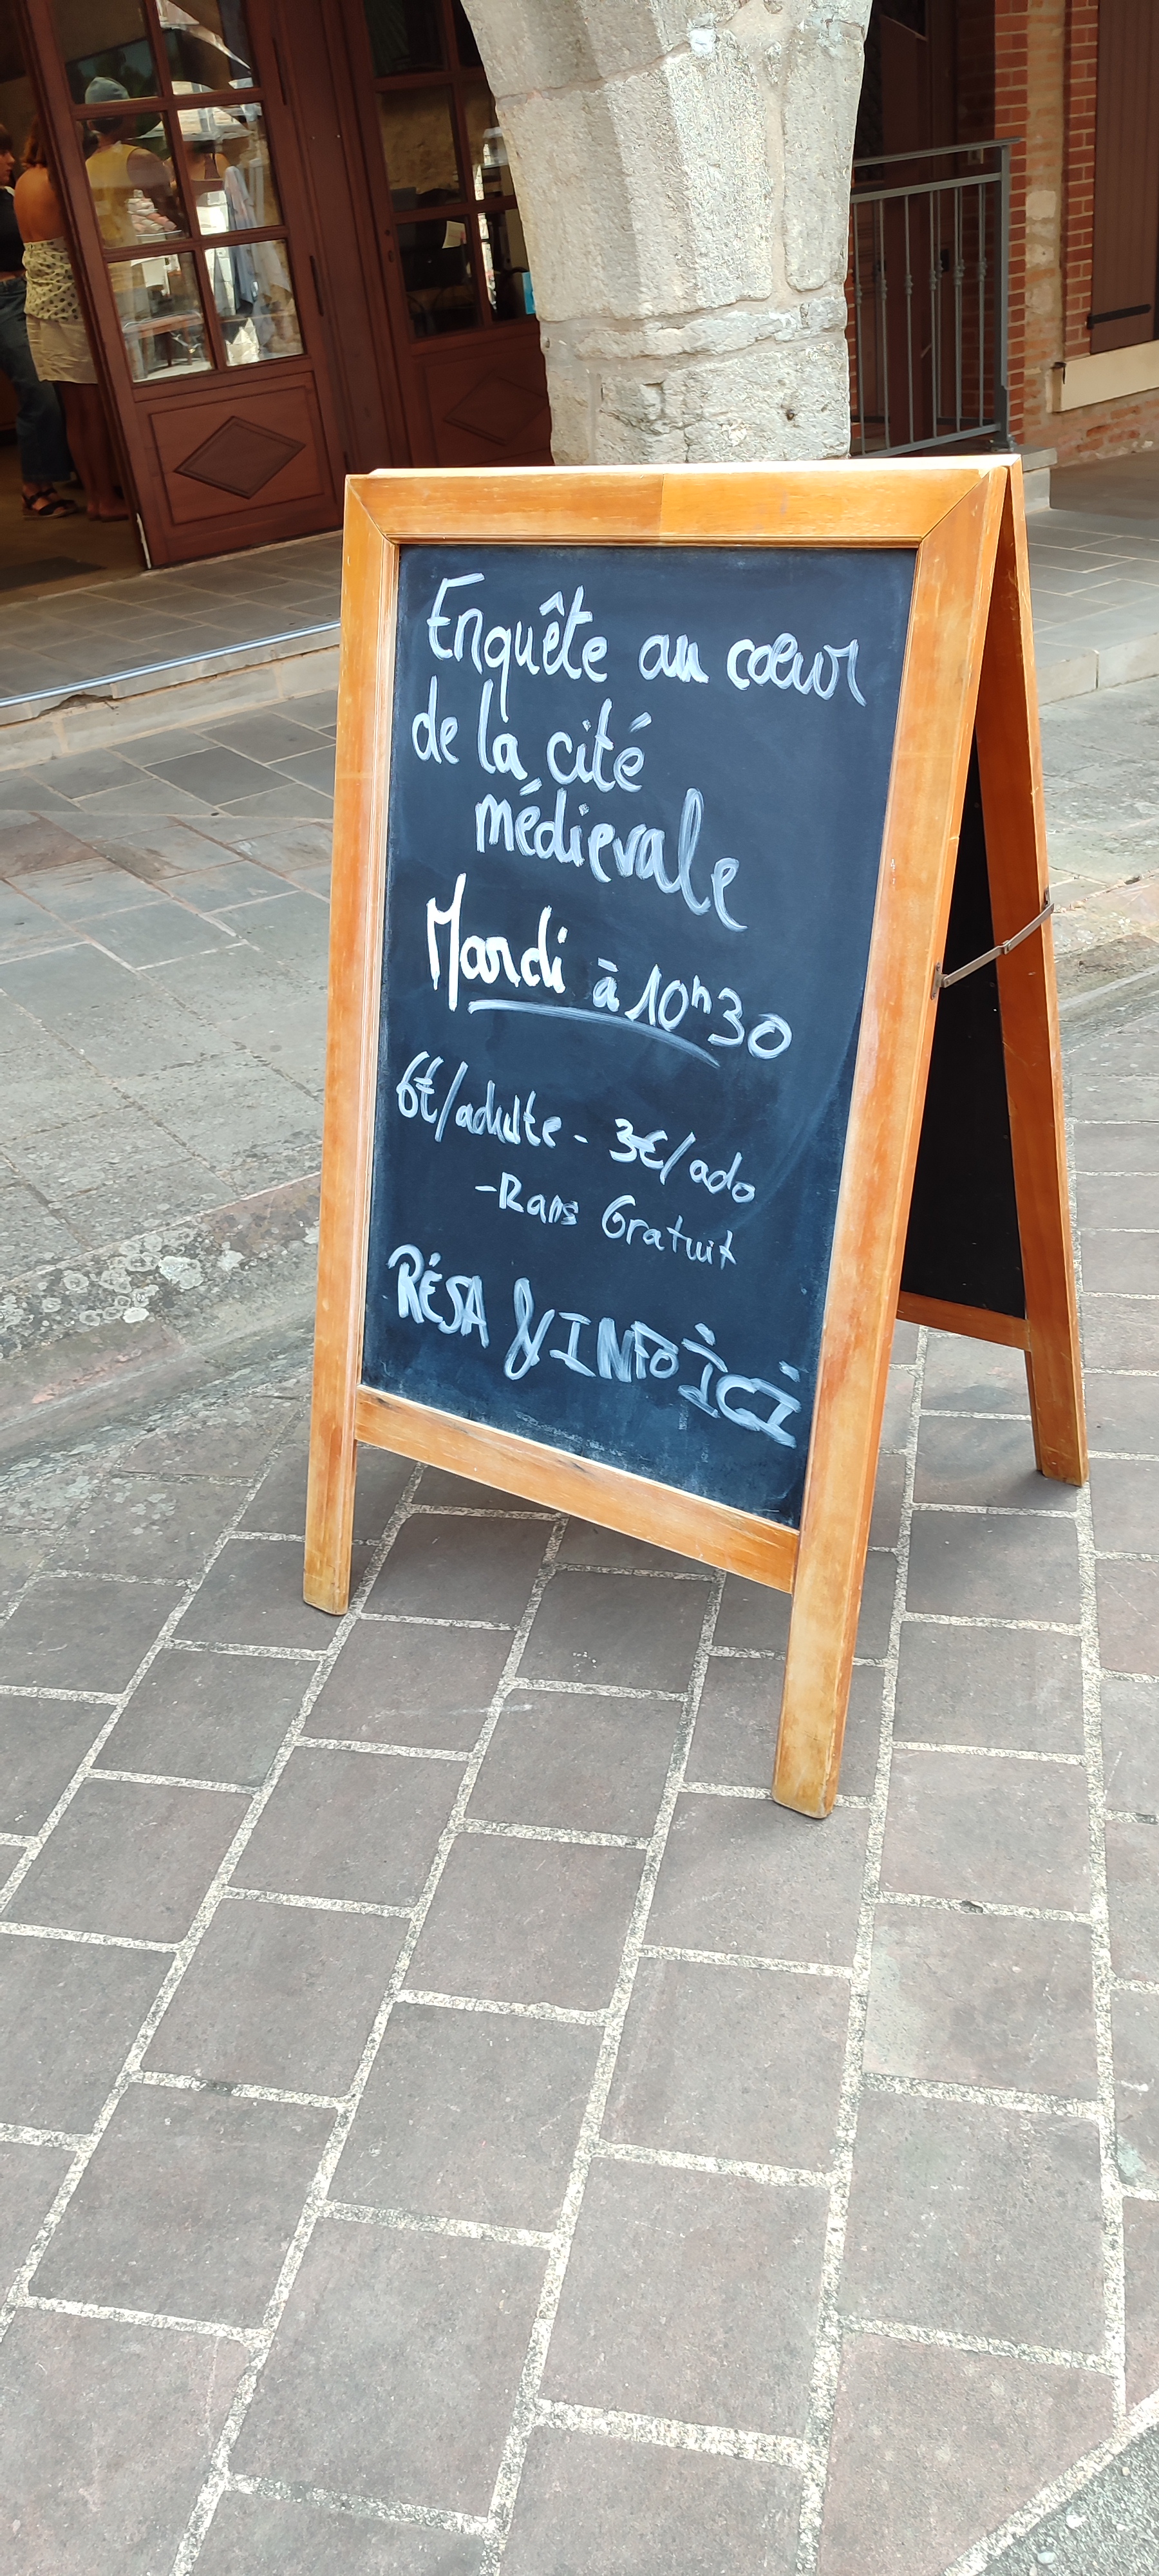 Enquête au cœur
de la cité
médievale
Mardi à 10h30
6€/adulte - 3€/ado
Gratuit
RÉSA & INFO ICI